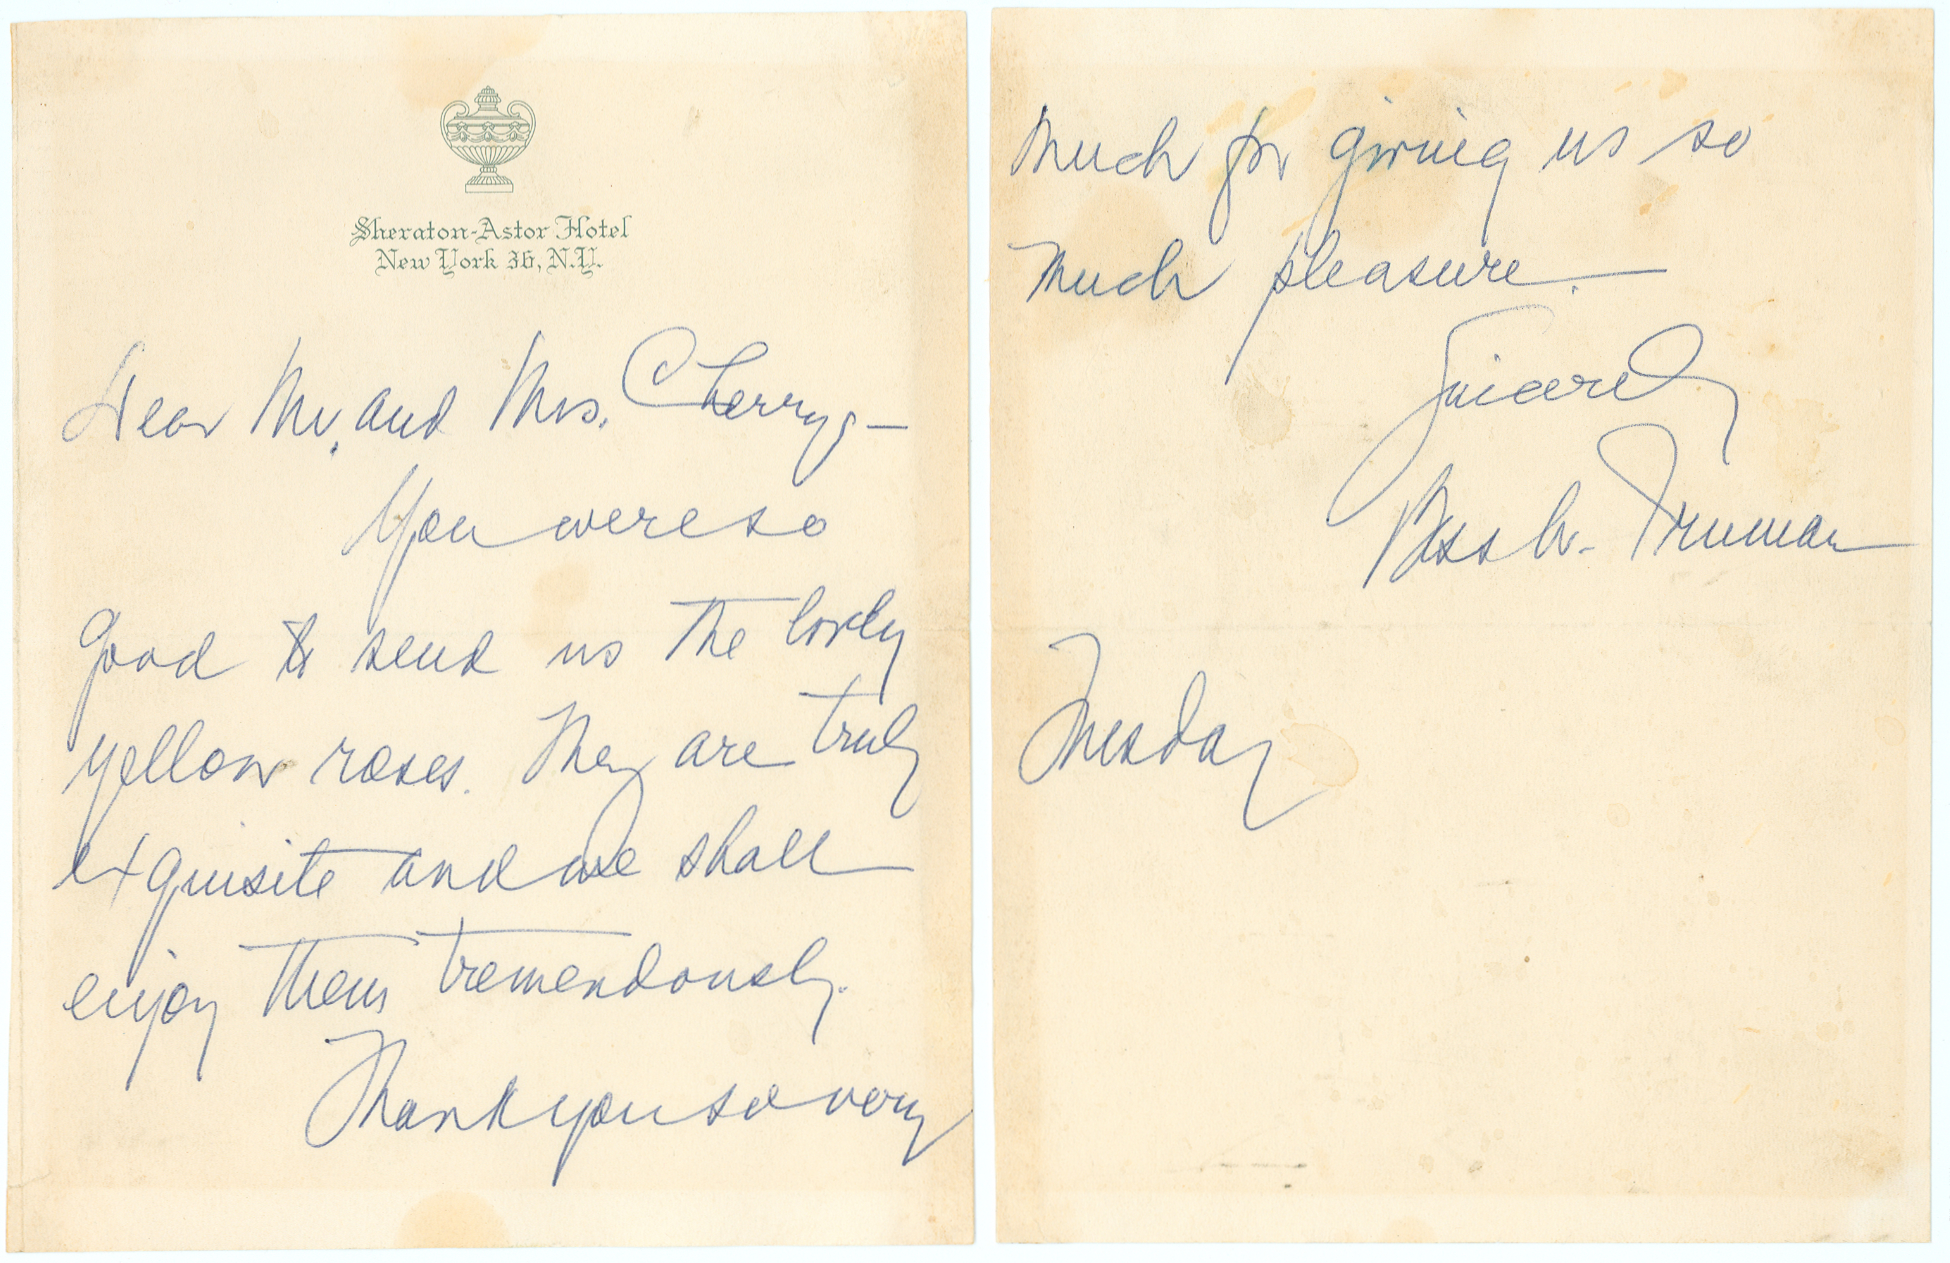 Sheraton-Astor Hotel
New York 36, N.Y.
Dear Mr. and Mrs. Cherry,—
You were so
good to send us the lovely
yellow roses. They are truly
exquisite and we shall
enjoy them tremendously.
Thank you so very
much for giving us so
much pleasure.
Sincerely
Bess W. Truman
Tuesday